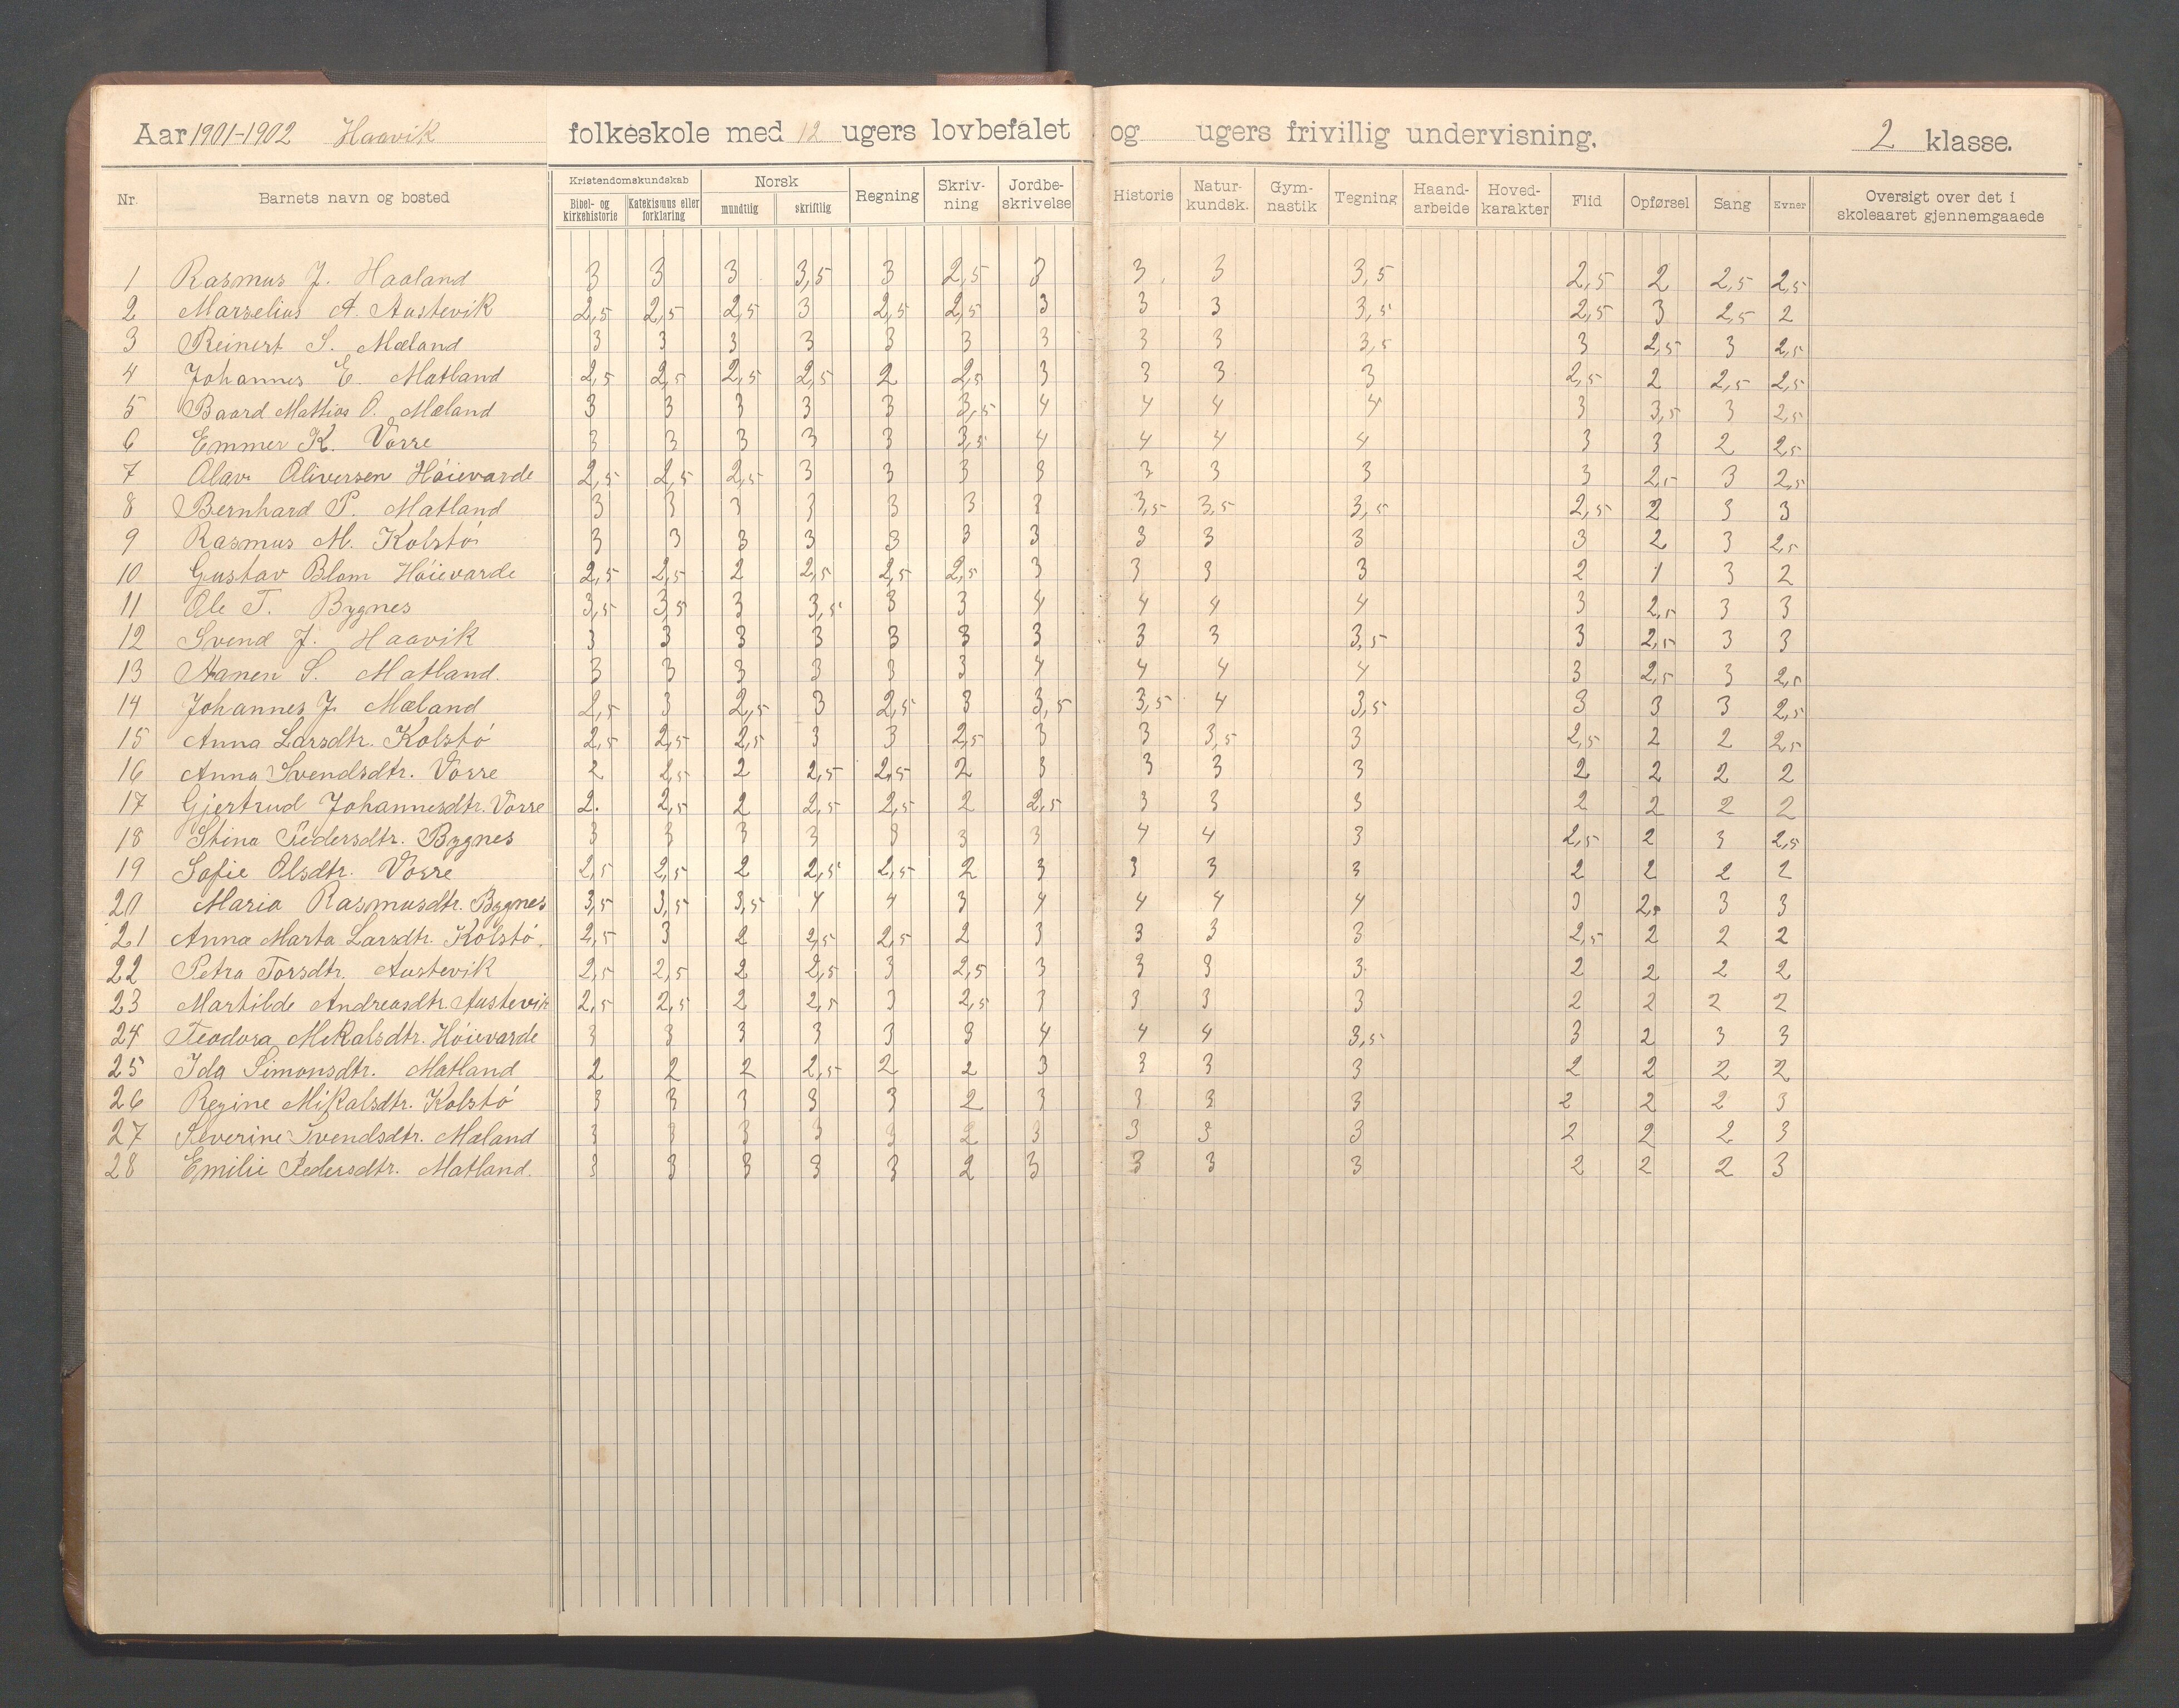 Aar 1901-1902 Haavik folkeskole med 12 ugers lovbefalet og ugers frivillig undervisning. 2 klasse.
Nr. Barnets navn og bosted Kristendomskundskab Bibel- og kirkehistorie Katekismus eller forklaring Norsk mundtlig skriftlig Regning Skriv-ning Jordbe-skrivelse Historie Natur-kundsk. Gym-nastik Tegning Haand-arbeide Hoved-karakter Flid Opførsel Sang Evner Oversigt over det i skoleaaret gjennemgaaede
1 Rasmus J. Haaland 3 3 3 3,5 3 2,5 3 3 3 3,5 2,5 2 2,5 2,5
2 Marselius A. Austevik 2,5 2,5 2,5 3 2,5 2,5 3 3 3 3,5 2,5 3 2,5 2
3 Reinert S. Mæland 3 3 3 3 3 3 3 3 3 3,5 3 2,5 3 2,5
4 Johannes E. Matland 2,5 2,5 2,5 2,5 2 2,5 3 3 3 3 2,5 2 2,5 2,5
5 Baard Mattias O. Mæland 3 3 3 3 3 3,5 4 4 4 4 3 3,5 3 2,5
6 Emmer K. Vorre 3 3 3 3 3 3,5 4 4 4 4 3 3 2 2,5
7 Olav Oliversen Høievarde 2,5 2,5 2,5 3 3 3 3 3 3 3 3 2,5 3 2,5
8 Bernhard P. Matland 3 3 3 3 3 3 3 3,5 3,5 3,5 2,5 2 3 3
9 Rasmus M. Kolstø 3 3 3 3 3 3 3 3 3 3 3 2 3 2,5
10 Gustav Blom Høievarde 2,5 2,5 2 2,5 2,5 2,5 3 3 3 3 2 1 3 2
11 Ole T. Bygnes 3,5 3,5 3 3,5 3 3 4 4 4 4 3 2,5 3 3
12 Svend J. Haavik 3 3 3 3 3 3 3 3 3 3,5 3 2,5 3 3
13 Aanen S. Matland. 3 3 3 3 3 3 4 4 4 4 3 2,5 3 2,5
14 Johannes J. Mæland 2,5 3 2,5 3 2,5 3 3,5 3,5 4 3,5 3 3 3 2,5
15 Anna Larsdtr. Kolstø 2,5 2,5 2,5 3 3 2,5 3 3 3,5 3 2,5 2 2 2,5
16 Anna Svendsdtr. Vorre 2 2,5 2 2,5 2,5 2 3 3 3 3 2 2 2 2
17 Gjertrud Johannesdtr. Vorre 2. 2,5 2 2,5 2,5 2 2,5 3 3 3 2 2 2 2
18 Stina Pedersdtr. Bygnes 3 3 3 3 3 3 3 4 4 3 2,5 2 3 2,5
19 Sofie Olsdtr. Vorre 2,5 2,5 2 2,5 2,5 2 3 3 3 3 2 2 2 2
20 Maria Rasmusdtr. Bygnes 3,5 3,5 3,5 4 4 3 4 4 4 4 3 2,5 3 3
21 Anna Marta Larsdtr. Kolstø. 2,5 3 2 2,5 2,5 2 3 3 3 3 2,5 2 2 2
22 Petra Torsdtr. Austevik 2,5 2,5 2 2,5 3 2,5 3 3 3 3 2 2 2 2
23 Martilde Andreasdtr. Austevik 2,5 2,5 2 2,5 3 2,5 3 3 3 3 2 2 2 2
24 Teodora Mikalsdtr. Høievarde 3 3 3 3 3 3 4 4 4 3,5 3 2 3 3
25 Ida Simonsdtr. Matland 2 2 2 2,5 2 2 3 3 3 3 2 2 2 2
26 Regine Mikalsdtr. Kolstø 3 3 3 3 3 2 3 3 3 3 2 2 2 3
27 Severine Svendsdtr. Mæland 3 3 3 3 3 2 3 3 3 3 2 2 2 3
28 Emilie Pedersdtr. Matland. 3 3 3 3 3 2 3 3 3 3 2 2 2 3